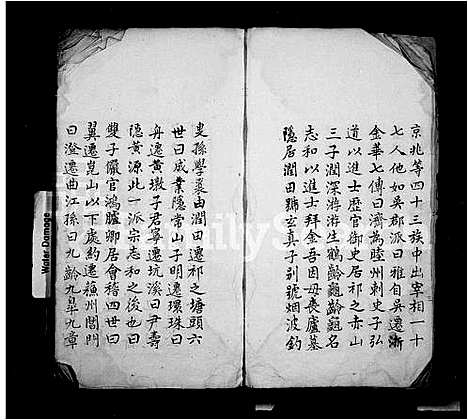 京兆等四十三族中出宰相一十
七人他如吳郡派曰雅自吳遷浙
金華七傳曰濟為睦州刺史子弘
道以進士歷官御史居祁之赤山
三子潤深㳺㳺生鶴齡龜齡龜名
志和以進士拜金吾因母喪廬墓
隱居潤田號玄真子别號烟波釣
叟孫學裘由潤田遷祁之塘頭六
世曰咸業隱常山子明遷環珠曰
舟遷黄墩子君寧遷坑溪曰尹壽
隱黄源此一派宗志和之後也曰
雙子儼官鴻臚卿居會稽四世曰
翼遷崑山以下處約遷蘓州閶門
曰澄遷曲江孫曰九齡九臯九章
Water Damage